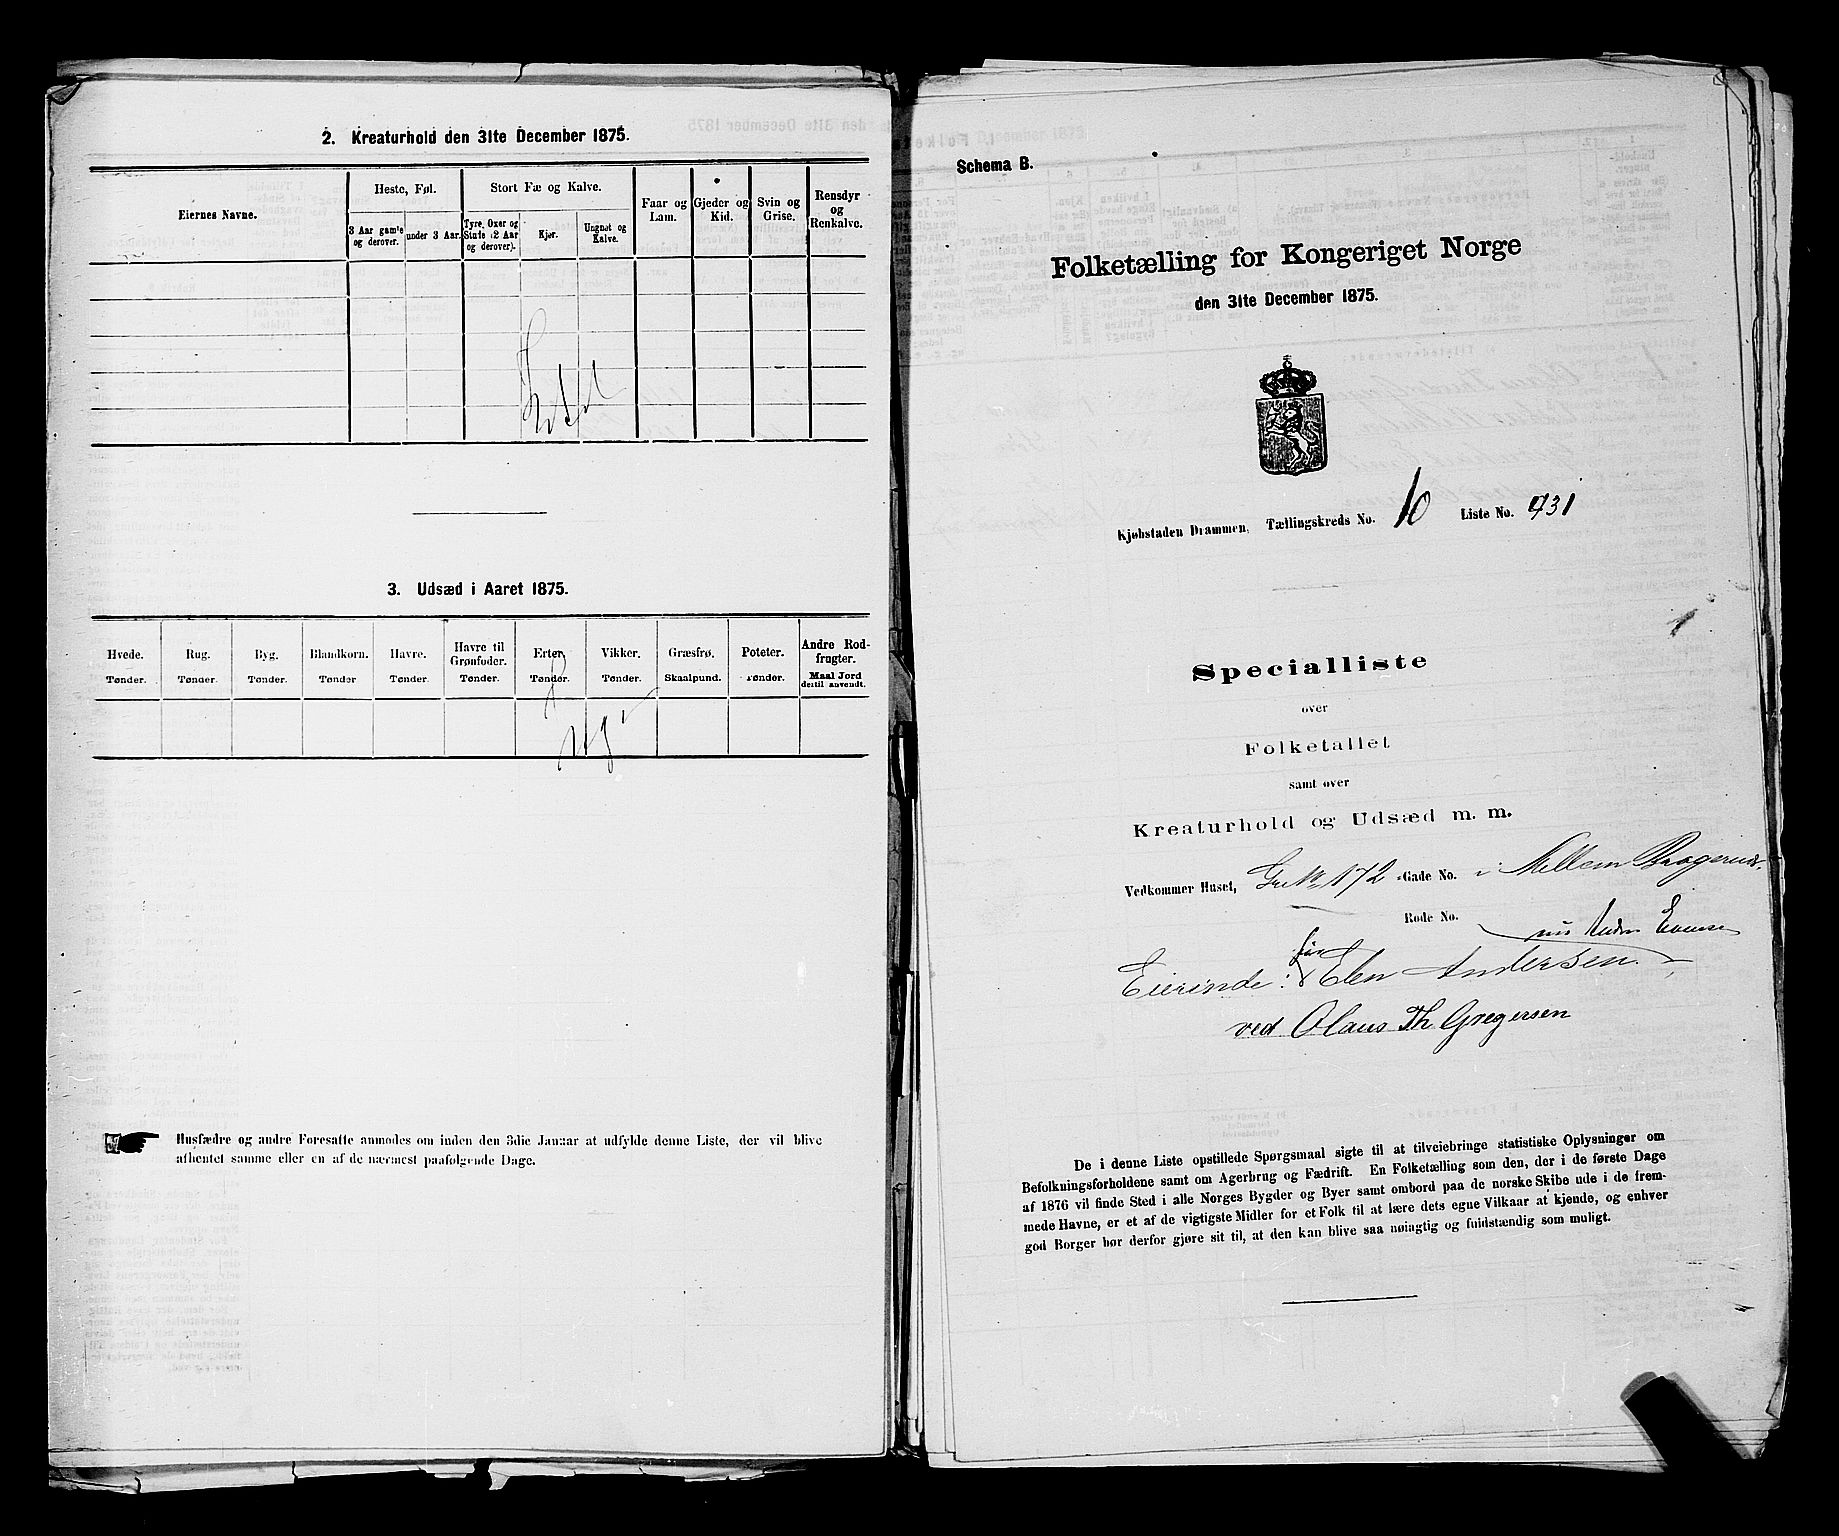 2. Kreaturhold den 31te December 1875.
Eiernes Navne.
Heste, Føl.
3 Aar gamle og derover.
under 3 Aar.
Stort Fæ og Kalve.
Tyre, Oxer og Stude (2 Aar og derover).
Kjør.
Ungnøt og Kalve.
Faar og Lam.
Gjeder og Kid.
Svin og Grise.
Rensdyr og Renkalve.
3. Udsæd i Aaret 1875.
Hvede. Tønder.
Rug. Tønder.
Byg. Tønder.
Blandkorn. Tønder
Havre. Tønder.
Havre til Grønfoder. Tønder.
Erter. Tønder.
Vikker. Tønder.
Græsfrø. Skaalpund.
Poteter. Tønder.
Andre Rodfrugter. Maal Jord dertil anvendt.
Husfædre og andre Foresatte anmodes om inden den 3die Januar at udfylde denne Liste, der vil blive
afhentet samme eller en af de nærmest paafølgende Dage.
Schema B.
Folketælling for Kongeriget Norge
den 31te December 1875.
Kjøbstaden Drammen, Tællingskreds No. 10 Liste No. 931
Specialliste
over
Folketallet
samt over
Kreaturhold og Udsæd m. m.
Vedkommer Huset, 172 Gade No. i Mellem Bragernes
Rode No.
Eierinde: Elen Andersen
ved Olaus Th Gregersen
De i denne Liste opstillede Spørgsmaal sigte til at tilveiebringe statistiske Oplysninger om
Befolkningsforholdene samt om Agerbrug og Fædrift. En Folketælling som den, der i de første Dage
af 1876 vil finde Sted i alle Norges Bygder og Byer samt ombord paa de norske Skibe ude i de frem-
mede Havne, er et af de vigtigste Midler for et Folk til at lære dets egne Vilkaar at kjende, og enhver
god Borger bør derfor gjøre sit til, at den kan blive saa nøiagtig og fuldstændig som muligt.